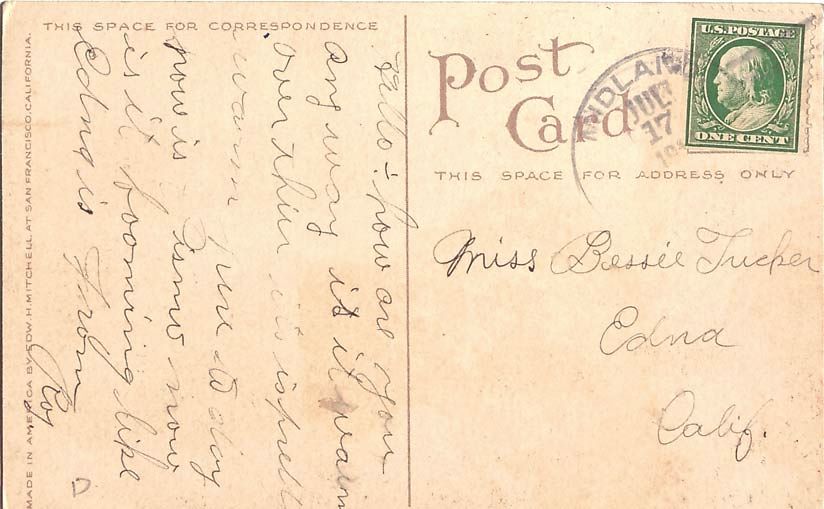 THIS SPACE FOR CORRESPONDENCE
Hello - how are you
any way is it warm
over thier it is
warm here to day
how is now
is it booming like
Edna is From
Roy
MADE IN AMERICA BY EDW. H. MITCHELL AT SAN FRANCISCO, CALIFORNIA.
Post
Card
MIDLA
JUL
17
U.S. POSTAGE
ONE CENT
THIS SPACE FOR ADDRESS ONLY
Miss Bessie Tucker
Edna
Calif.